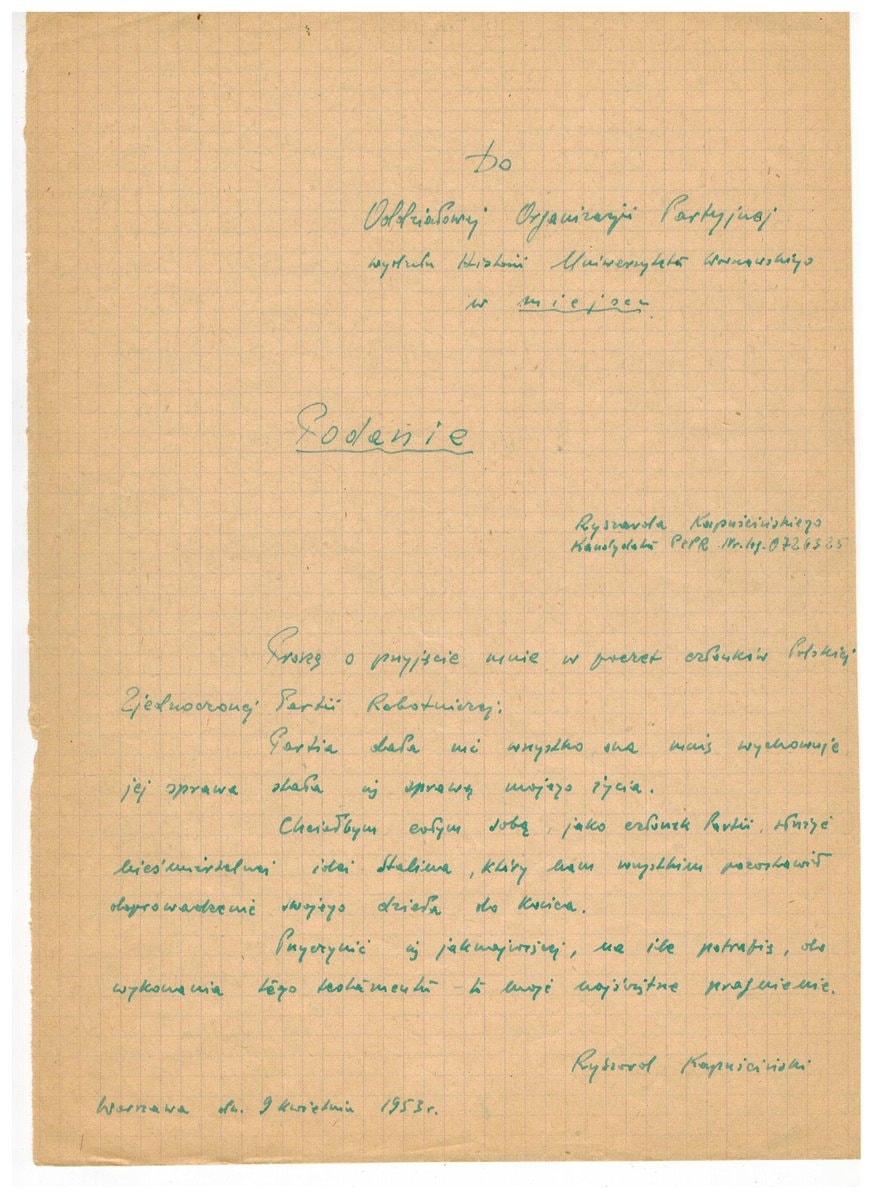 Do
Oddziałowej Organizacji Partyjnej
wydziału Historii Uniwersytetu Warszawskiego
w miejscu
Podanie
Ryszarda Kapuścińskiego
Kandydata PZPR Nr. leg. 0724325
Proszę o przyjęcie mnie w poczet członków Polskiej
Zjednoczonej Partii Robotniczej.
Partia dała mi wszystko, ona mnie wychowuje,
jej sprawa stała się sprawą mojego życia.
Chciałbym całym sobą, jako członek Partii, służyć
nieśmiertelnej idei Stalina, który nam wszystkim pozostawił
doprowadzenie swojego dzieła do końca.
Przyczynić się jaknajwięcej, na ile potrafię, do
wykonania tego testamentu - to moje najświętsze pragnienie.
Ryszard Kapuściński
Warszawa dn. 9 kwietnia 1953 r.